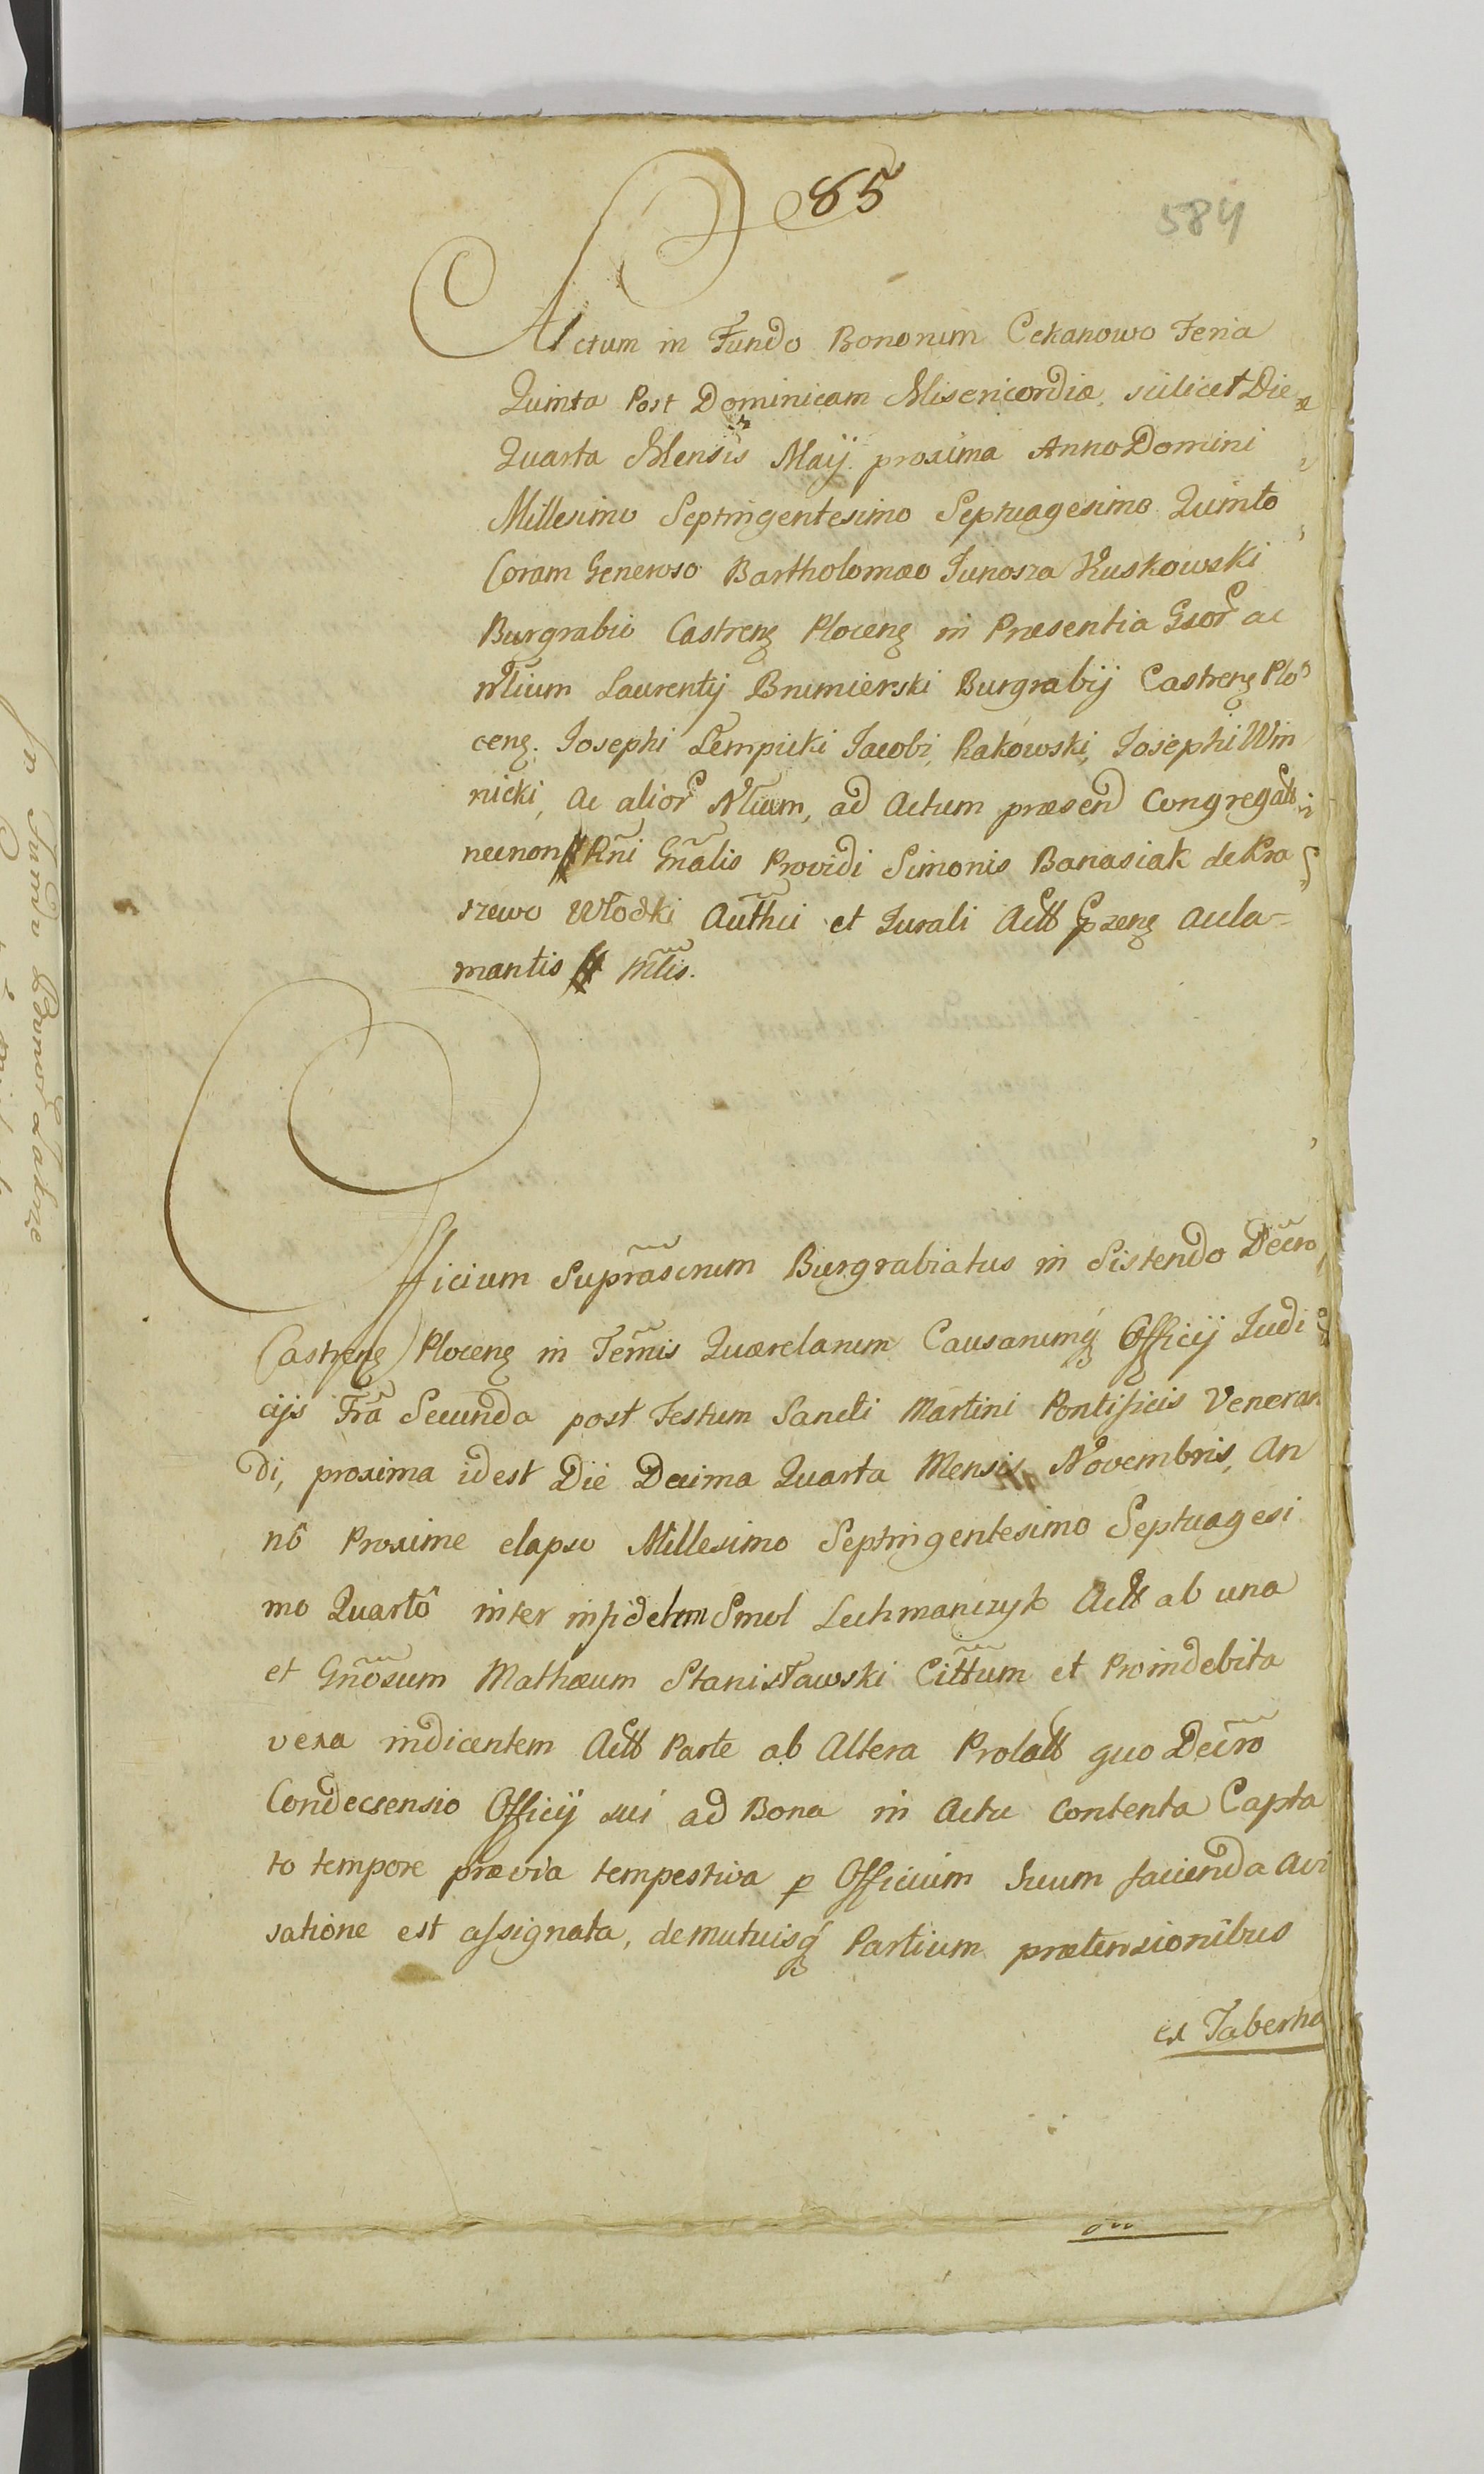 85
584
Actum in Fundo Bonorum Cekanowo Feria
Quinta Post Dominicam Misericordiæ, scilicet Die
Quarta Mensis Maij proxima Anno Domini
Millesimo Septingentesimo Septuagesimo Quinto
Coram Generoso Bartholomæo Junosza Kuskowski
Burgrabio Castreng Ploceng in Præsentia Gsor ac
Nlium Laurentij Brumierski Burgrabij Castreng Plo
ceng. Josephi Lempicki Jacobi, Rakowski, Josephi Win
nicki, ac alior Nlium, ad Actum præsend Congregatt
necnon Rñi Gñalis Providi Simonis Banasiak de Kra
szewo Włodki Authci et Jurali Actt Gozeng accla=
mantis Mtis.
Officium Suprascrum Burgrabiatus in Sistendo Decro
Castreng Ploceng in Termis Quærelarum Causarumq Officij Judi
cijs Fra Secunda post Festum Sancti Martini Pontificis Veneran
di, proxima idest Die Decima Quarta Mensis Novembris, An
nô Proxime elapso Millesimo Septingentesimo Septuagesi
mo Quartô inter infidelem Smol Lechmanczyk Actt ab una
et Gñosum Mathæum Stanisławski Cittum et Proindebita
vexa indicentem Actt Parte ab Altera Prolatt quo Decro
Condecsensio Officij sui ad Bona in Actu Contenta Capta
to tempore prævia tempestiva p Officium Suum facienda Avi
satione est assignata, de mutuisq Partium prætensionibus
ex Taberna